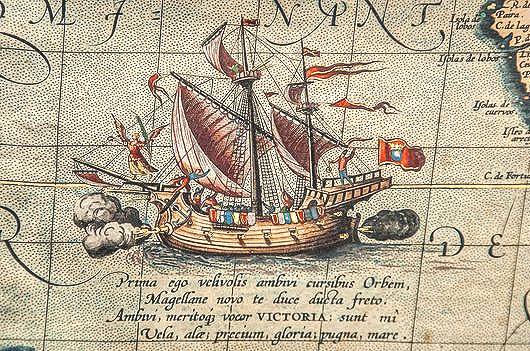 MA F I N P N T
Isola de lobos
R. de Patra
C. de lag
Isolas de lobos
Isolas de cuervos.
Isleo
C. de Fortu
R D E
Prima ego velivolis ambivi cursibus Orbem,
Magellane novo te duce ducta freto.
Ambivi, meritoq; vocor VICTORIA: sunt mî
Vela, alæ; precium, gloria; pugna, mare.